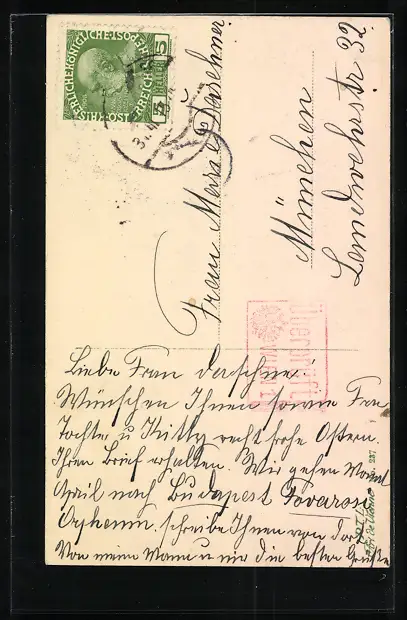 KAISERLICHE KÖNIGLICHE ÖSTERREICHISCHE POST
5 HELLER 5
Frau Marie Daschner
München
Landwehrstr 32
Überprüft
Liebe Frau Daschner!
Wünschen Ihnen sowie Frl
Tochter u Kitty recht frohe Ostern.
Ihren Brief erhalten. Wir gehen Monat
April nach Budapest Fovarosi
Orpheum, schreibe Ihnen von dort
Von meinem Mann u mir die besten Grüße
No. 237